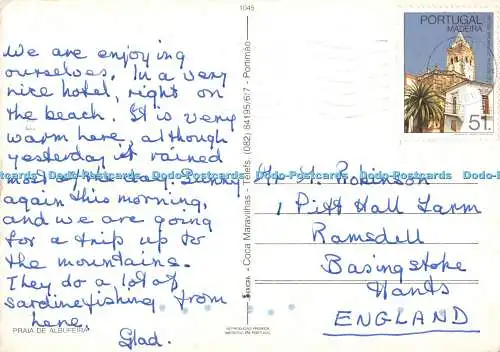 1045
We are enjoying
ourselves. In a very
nice hotel, right on
the beach. It is very
warm here, although
yesterday it rained
most of the day. Sunny
again this morning,
and we are going
for a trip up to
the mountains.
They do a lot of
sardine fishing from
here.
Glad.
PRAIA DE ALBUFEIRA
Coca Maravilhas - Telefs. (082) 84195/6/7 - Portimão
REPRODUÇÃO PROIBIDA
IMPRESSO EM PORTUGAL
PORTUGAL
MADEIRA
51.
Mr H. Robinson
1 Pitt Hall Farm
Ramsdell
Basingstoke
Hants
ENGLAND
Dodo-Postcards Dodo-Postcards Dodo-Postcards Dodo-Postcards